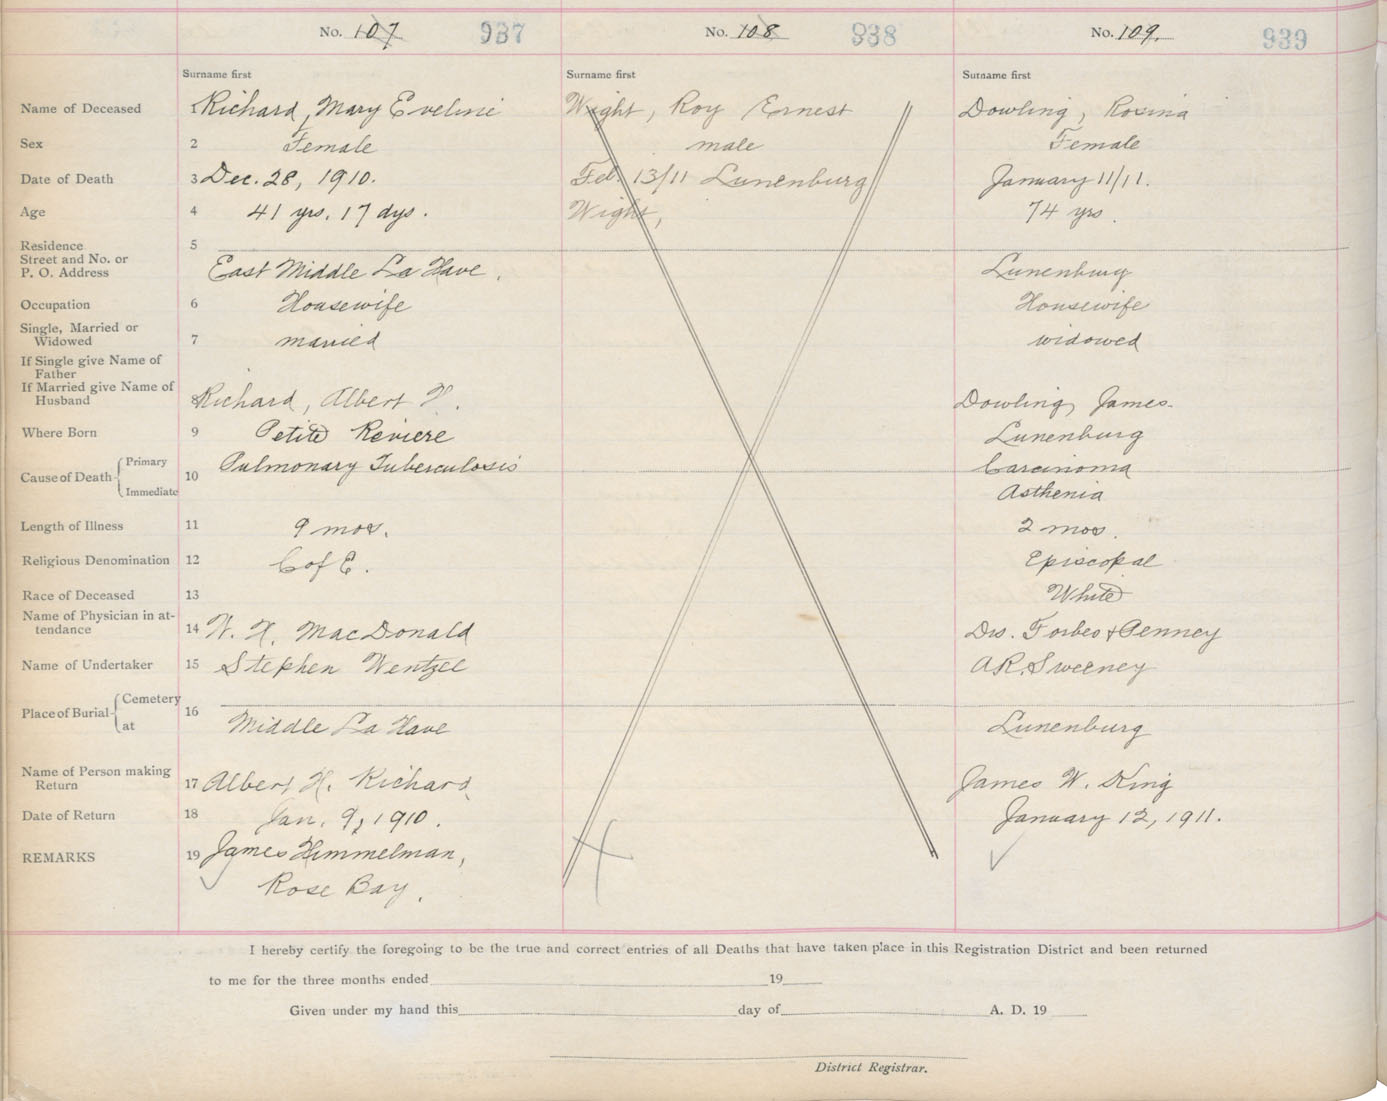 No. 107 937 No. 108 938 No. 109. 939
Surname first Surname first Surname first
Name of Deceased 1 Richard, Mary Eveline Wight, Roy Ernest Dowling, Rosina
Sex 2 Female male Female
Date of Death 3 Dec. 28, 1910. Feb. 13/11 Lunenburg January 11/11.
Age 4 41 yrs, 17 dys. Wight, 74 yrs.
Residence 5
Street and No. or
P. O. Address East Middle La Have. Lunenburg
Occupation 6 Housewife Housewife
Single, Married or
Widowed 7 married widowed
If Single give Name of
Father
If Married give Name of
Husband 8 Richard, Albert H. Dowling, James.
Where Born 9 Petite Reviere Lunenburg
Cause of Death Primary 10 Pulmonary Tuberculosis Carcinoma
Immediate Asthenia
Length of Illness 11 9 mos. 2 mos.
Religious Denomination 12 C of E. Episcopal
Race of Deceased 13 White
Name of Physician in at-
tendance 14 W. H. MacDonald Drs. Forbes & Penney
Name of Undertaker 15 Stephen Wentzel A.R. Sweeney
Place of Burial Cemetery 16
at Middle La Have Lunenburg
Name of Person making
Return 17 Albert H. Richard James W. King
Date of Return 18 Jan. 9, 1910. January 12, 1911.
REMARKS 19 James Himmelman,
Rose Bay.
I hereby certify the foregoing to be the true and correct entries of all Deaths that have taken place in this Registration District and been returned
to me for the three months ended 19
Given under my hand this day of A. D. 19
District Registrar.